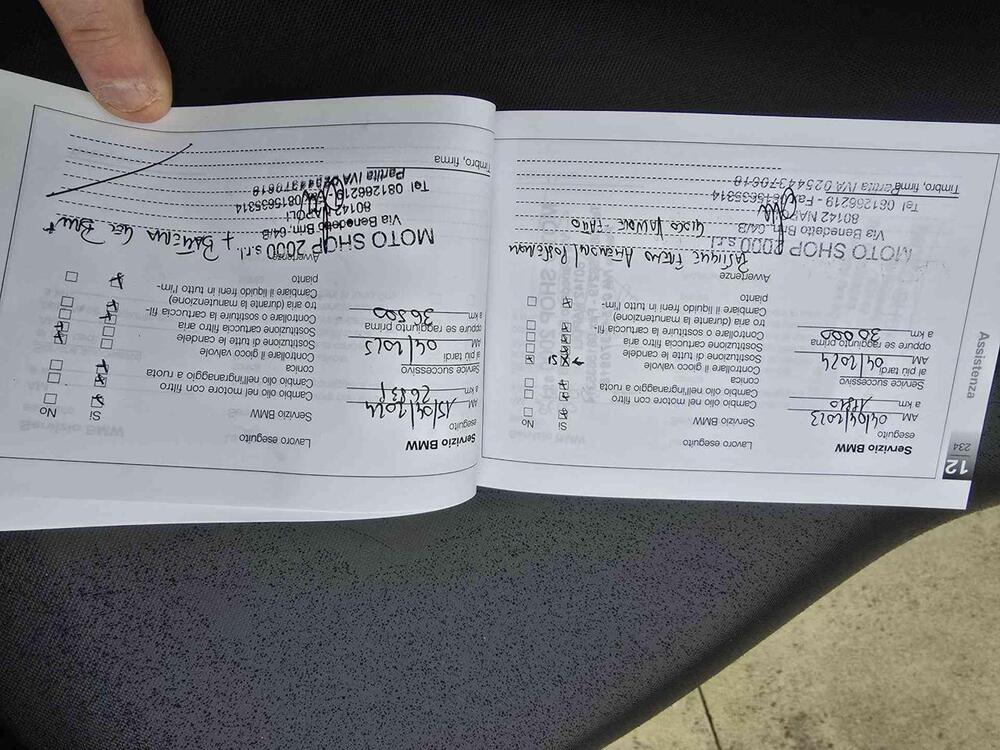 12
234
Assistenza
Servizio BMW
eseguito
AM 04/04/2023
a km
Service successivo
al più tardi
AM 04/2024
oppure se raggiunto prima
a km 30000
MOTO SHOP 2000 s.r.l.
Via Benedetto Brin, 64/B
80142 NAPOLI
Tel. 081266219 - Fax 0815635314
Partita IVA 02544370618
Timbro, firma
Lavoro eseguito
Sì No
Servizio BMW
Cambio olio nel motore con filtro
Cambio olio nell'ingranaggio a ruota
conica
Controllare il gioco valvole
SI
Sostituzione di tutte le candele
Sostituzione cartuccia filtro aria
Controllare o sostituire la cartuccia fil-
tro aria (durante la manutenzione)
Cambiare il liquido freni in tutto l'im-
pianto
Avvertenze
GIOCO VALVOLE FATTO
Servizio BMW
eseguito
AM 15/04/2024
a km
Service successivo
al più tardi
AM 04/2025
oppure se raggiunto prima
a km 36500
MOTO SHOP 2000 s.r.l.
Via Benedetto Brin, 64/B
80142 NAPOLI
Tel. 081266219 - Fax 0815635314
Partita IVA 02544370618
Timbro, firma
Lavoro eseguito
Sì No
Servizio BMW
Cambio olio nel motore con filtro
Cambio olio nell'ingranaggio a ruota
conica
Controllare il gioco valvole
Sostituzione di tutte le candele
Sostituzione cartuccia filtro aria
Controllare o sostituire la cartuccia fil-
tro aria (durante la manutenzione)
Cambiare il liquido freni in tutto l'im-
pianto
Avvertenze
+ BATTERIA